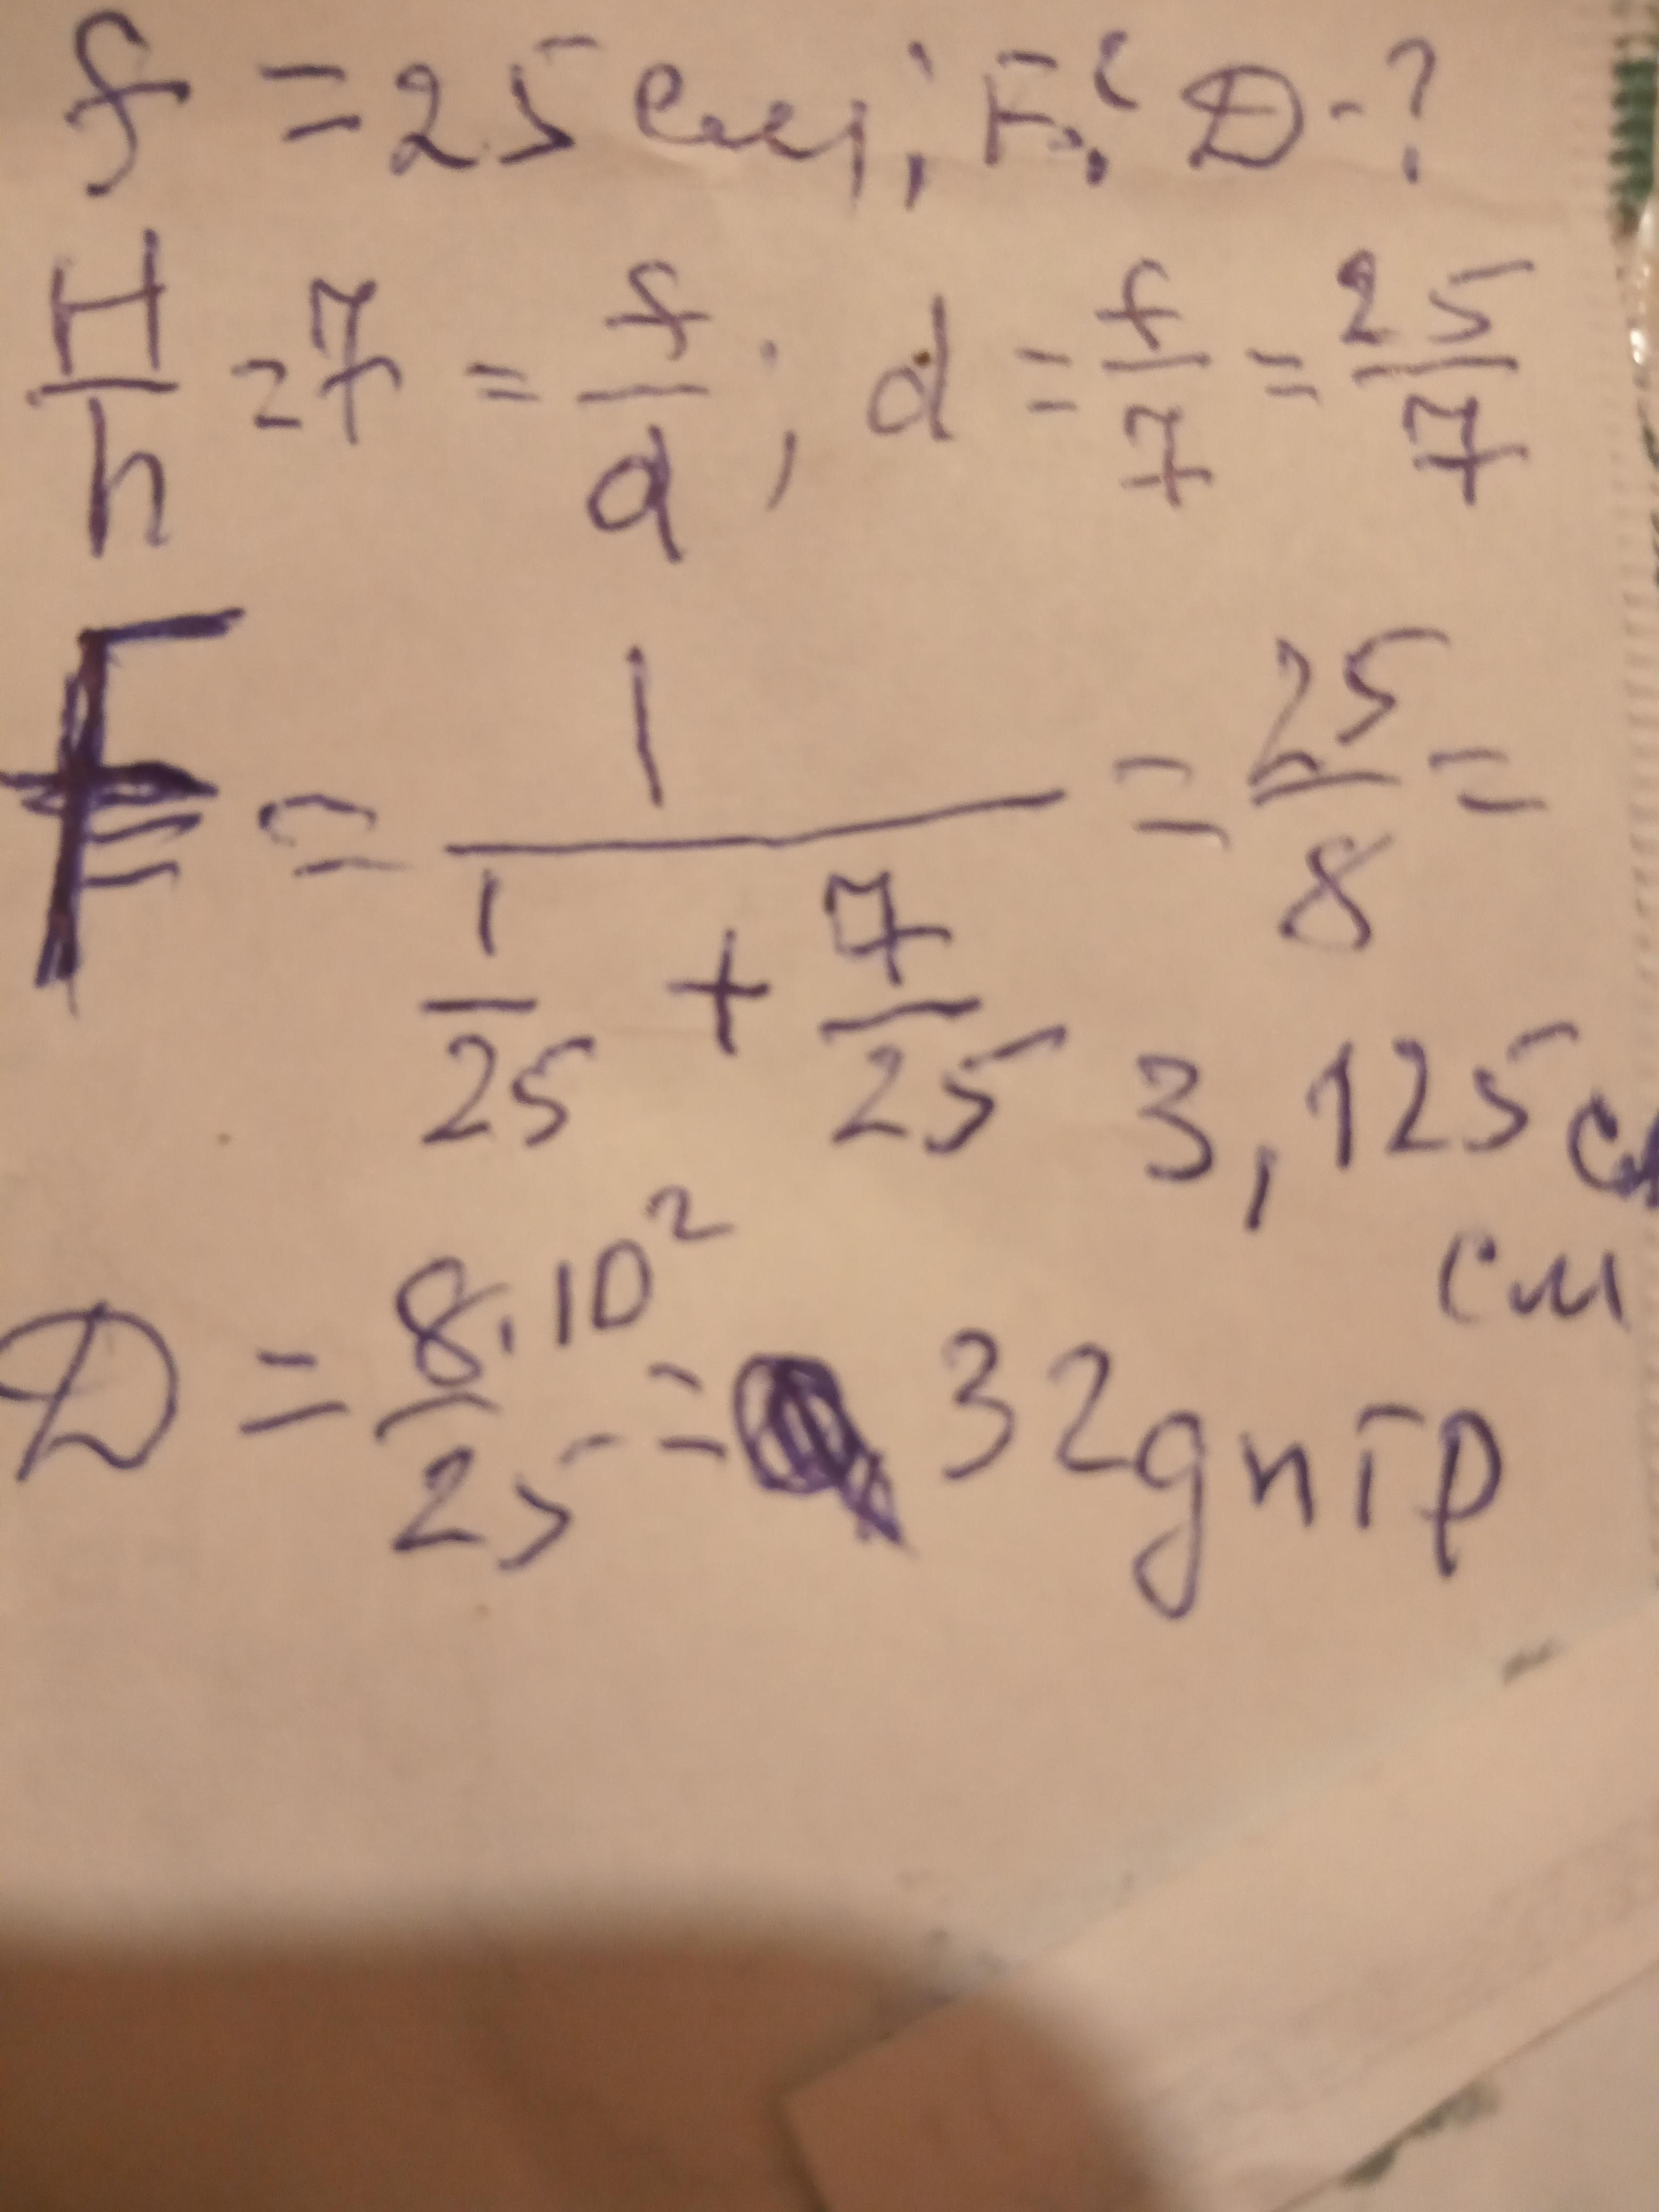 f = 25 см; F; D - ?
H/h = 7 = f/d; d = f/7 = 25/7
F = 1/(1/25 + 7/25) = 25/8 =
3,125 см
см
D = 8·10²/25 = 32 дптр